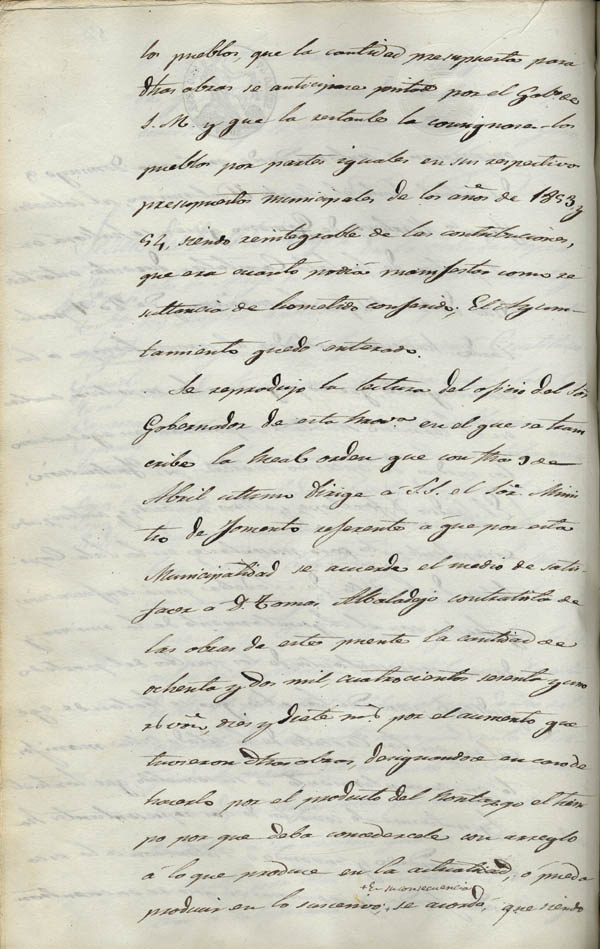 los pueblos, que la cantidad presupuesta para
dhas obras se anticipare por el Gobo. de
S. M. y que la restante la consignara los
pueblos por partes iguales en sus respectivos
presupuestos municipales de los años de 1853 y
54, siendo reintegrable de las contribuciones,
que era cuanto podia manifestar como re
sultancia de cometido conferido; El Ayun-
tamiento quedó enterado.
Se reprodujo la lectura del oficio del Sor.
Gobernador de esta Prova. en el que se trans
cribe la Real orden que con fha 9 de
Abril ultimo dirige á S.S. el Sor. Minis
tro de Fomento referente á que por esta
Municipalidad se acuerde el medio de satis-
facer á D. Tomas Albaladejo contratista de
las obras de este puente la cantidad de
ochenta y dos mil, cuatrocientos sesenta y uno
rs von, diez y siete ms por el aumento que
tuvieron dhas obras, designandose en caso de
hacerlo por el producto del Pontazgo el tiem
po por que deba concedersele con arreglo
á lo que produce en la actualidad, ó pueda
+ En su consecuencia
producir en lo sucesivo, + se acordó, que siendo